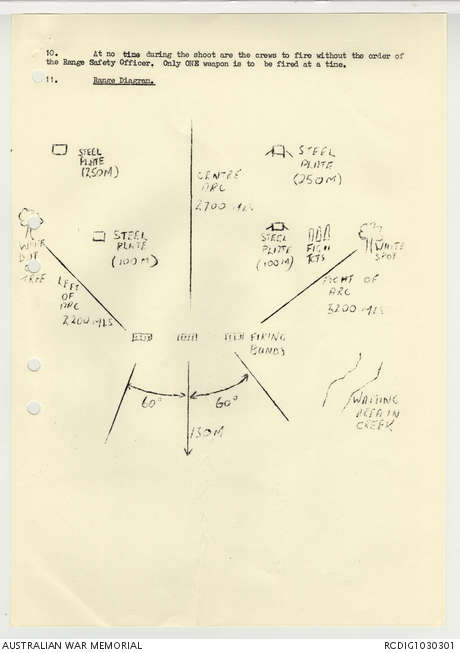 10. At no time during the shoot are the crews to fire without the order of
the Range Safety Officer. Only ONE weapon is to be fired at a time.
11. Range Diagram.
STEEL
PLATE
(250M)
CENTRE
ARC
2700 MLS
STEEL
PLATE
(250M)
WHITE
DOT
TREE
STEEL
PLATE
(100M)
STEEL
PLATE
(100M)
FIG 11
TGTS
WHITE
SPOT
LEFT
OF
ARC
2200 MLS
RIGHT OF
ARC
3200 MLS
FIRING
BUNDS
60°
60°
130M
WAITING
AREA IN
CREEK
AUSTRALIAN WAR MEMORIAL
RCDIG1030301